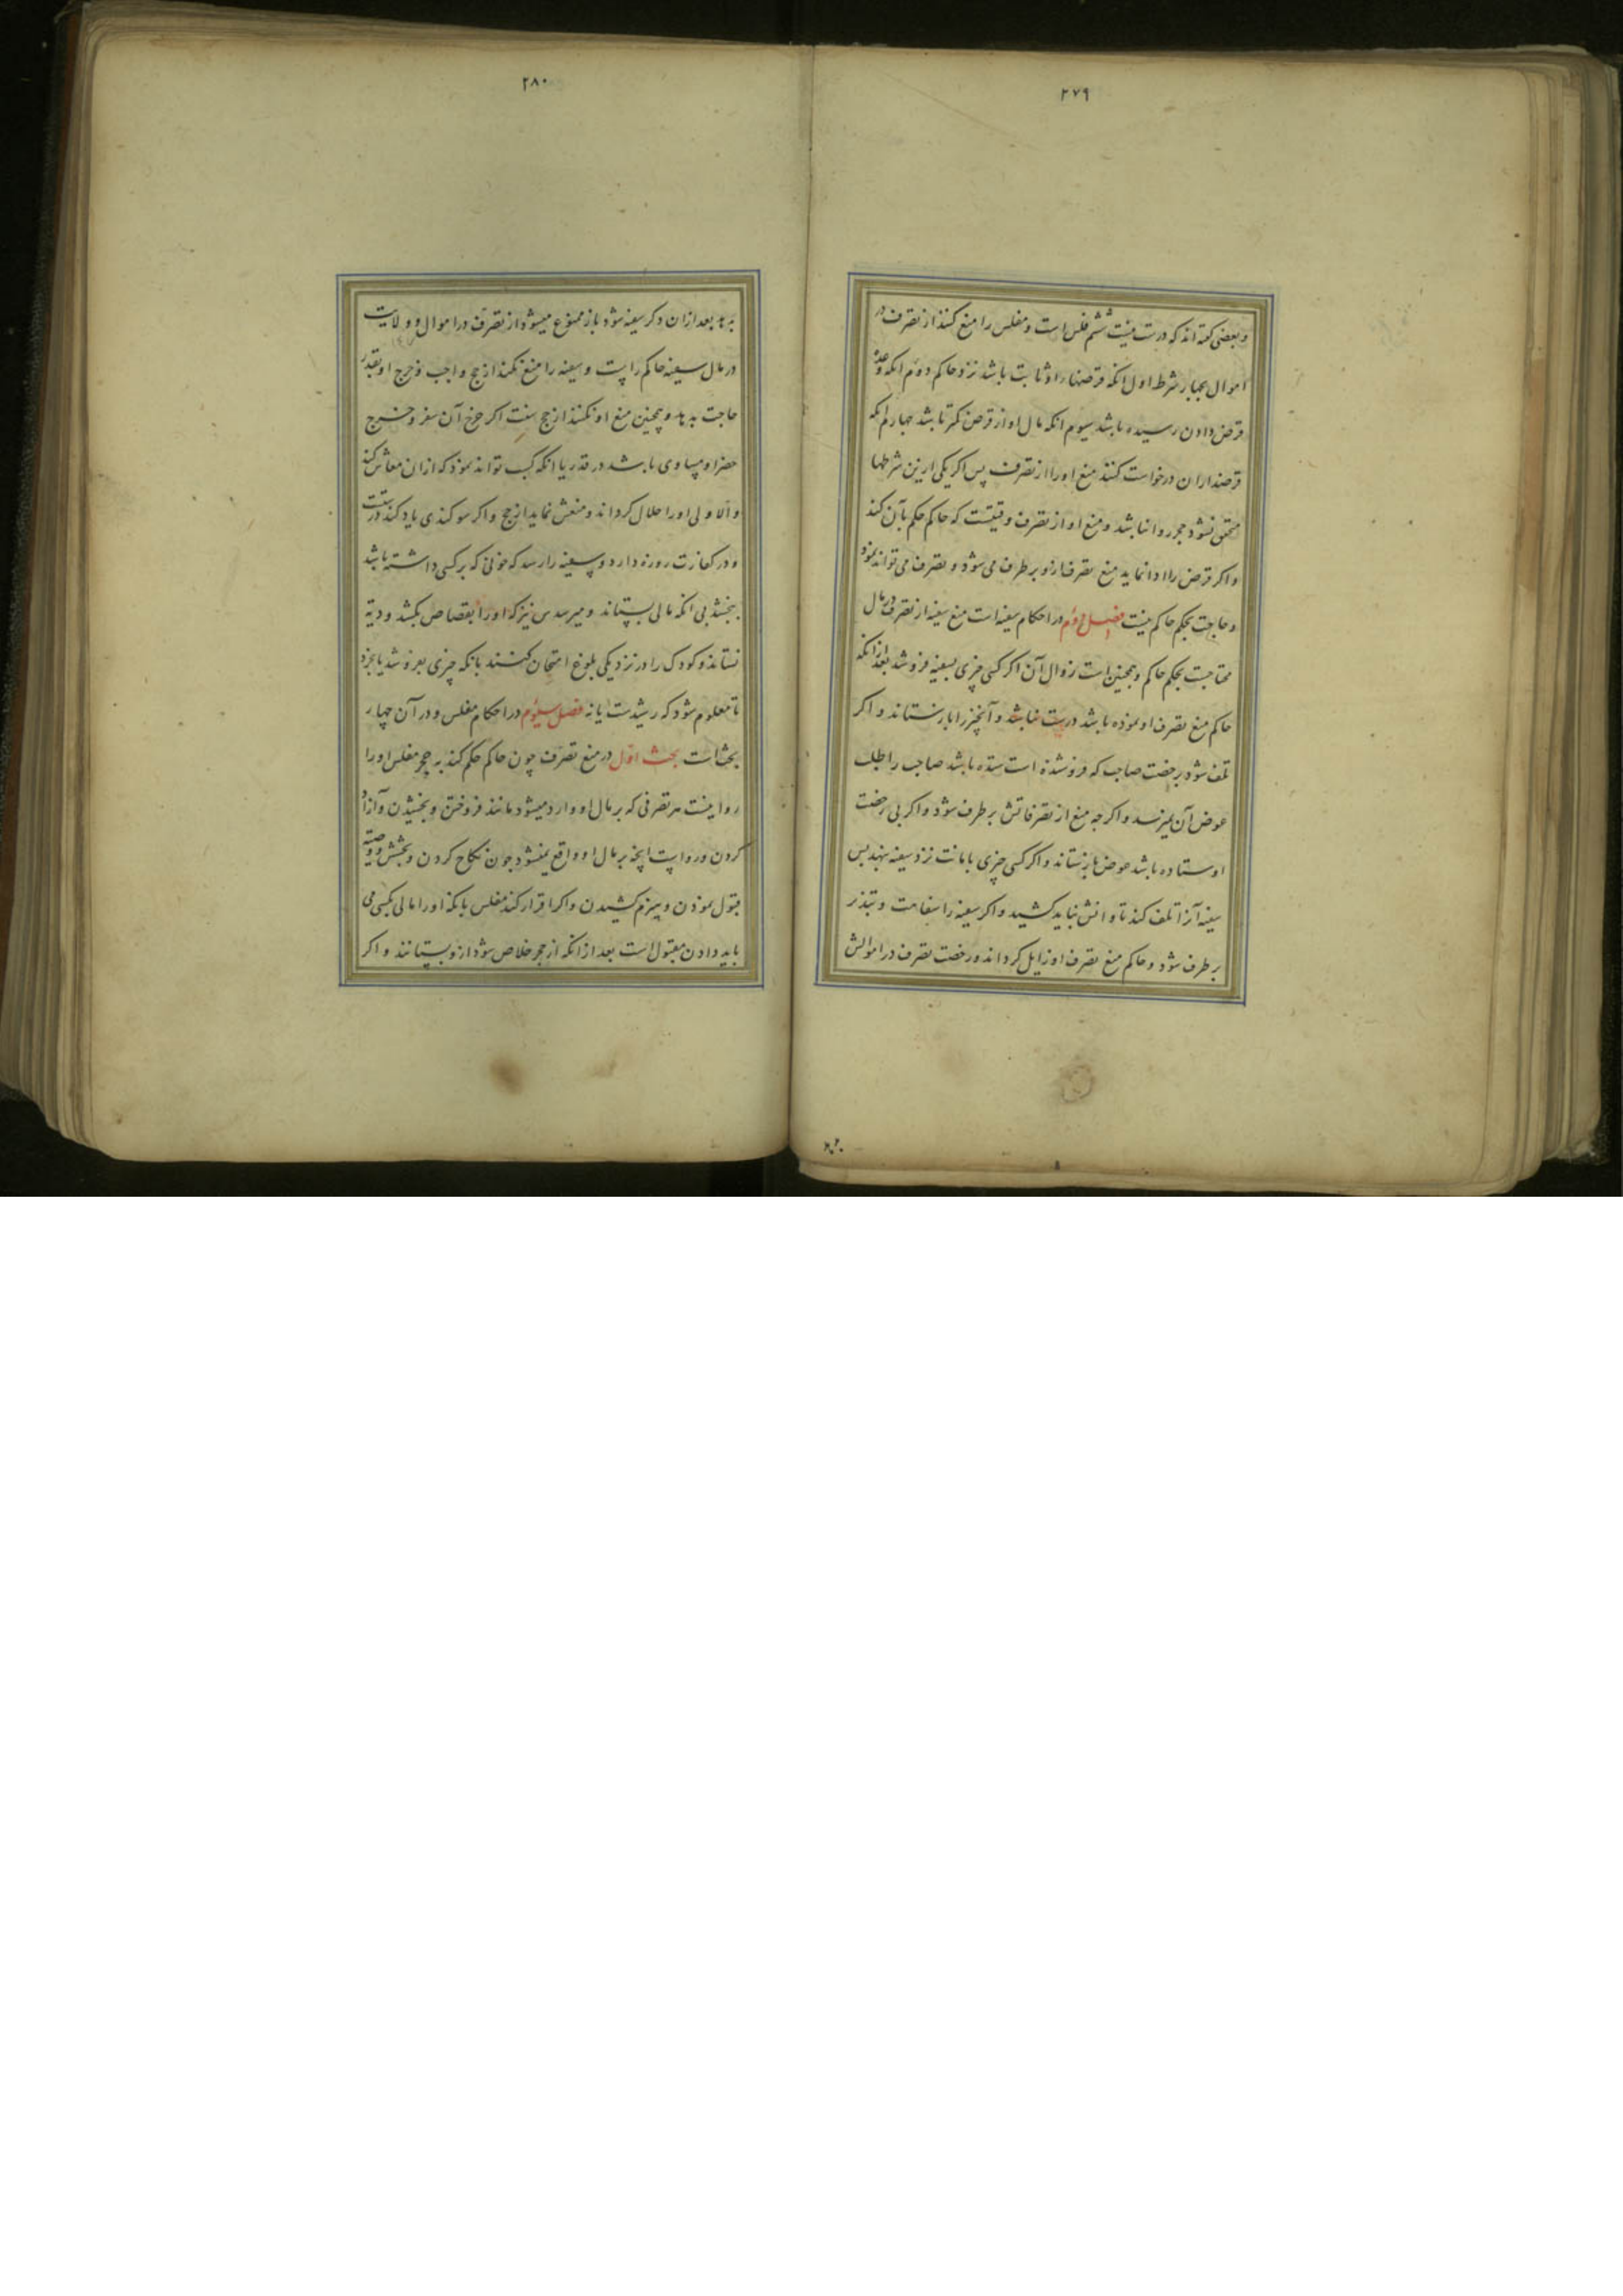 ۲۷۹
و بعضی گفته اند که درست نیست ششم فلس است و مفلس را منع کنند از تصرف در
اموال بچهار شرط اول انکه قرضها بر او ثابت باشد نزد حاکم دوم انکه وعده
قرض دادن رسیده باشد سیوم انکه مال او از قرض کمتر باشد چهارم انکه
قرضداران درخواست کنند منع او را از تصرف پس اکر یکی ازین شرطها
متحقق نشود حجر روا نباشد و منع او از تصرف وقتیست که حاکم حکم بآن کند
و اکر قرض را ادا نماید منع تصرف ازو بر طرف می شود و تصرف می تواند نمود
و حاجت بحکم حاکم نیست فصل دوم در احکام سفیه است منع سفیه از تصرف در مال
محتاجست بحکم حاکم و همچنین است زوال آن اکر کسی چیزی بسفیه فروشد بعد از انکه
حاکم منع تصرف او نموده باشد درست نباشد و آنچیز را باز ستاند و اکر
تلف شود برخصت صاحب که فروشنده است ستده باشد صاحب را طلب
عوض آن نمیرسد و اکر چه منع از تصرفاتش بر طرف شود و اکر بی رخصت
او ستاده باشد عوض باز ستاند و اکر کسی چیزی بامانت نزد سفیه بنهد پس
سفیه آنرا تلف کند تاوانش نباید کشید و اکر سفیه را سفاهت و تبذر
بر طرف شود و حاکم منع تصرف او زایل کرداند و رخصت تصرف در اموالش
۲۸۰
بدهد بعد ازان دکر سفیه شود باز ممنوع میشود از تصرف در اموال و ولایت
در مال سفیه حاکم راست و سفیه را منع نکنند از حج واجب و خرج او بقدر
حاجت بدهد و همچنین منع او نکنند از حج سنت اکر خرج آن سفر و خرج
حضر او مساوی باشد در قدر یا انکه کسب تواند نمود که ازان معاش کند
و الا ولی او را حلال کرداند و منعش نماید از حج و اکر سوکندی یاد کند درست
و در کفارت روزه دارد و سفیه را رسد که خونی که بر کسی داشته باشد
ببخشد بی انکه مالی بستاند و میرسدس نیز که او را بقصاص بکشد و دیة
نستاند و کودک را در نزدیکی بلوغ امتحان کنند بانکه چیزی بفروشد یا بخرد
تا معلوم شود که رشیدست یا نه فصل سیوم در احکام مفلس و در آن چهار
بحث است بحث اول در منع تصرف چون حاکم حکم کند به حجر مفلس او را
روا نیست هر تصرفی که بر مال او وارد میشود مانند فروختن و بخشیدن و آزاد
کردن و رواست انچه بر مال او واقع نمیشود چون نکاح کردن و بخشش و وصیة
قبول نمودن و هیزم کشیدن و اکر اقرار کند مفلس بانکه او را مالی بکسی می
باید دادن مقبول است بعد از انکه از حجر خلاص شود ازو بستانند و اکر